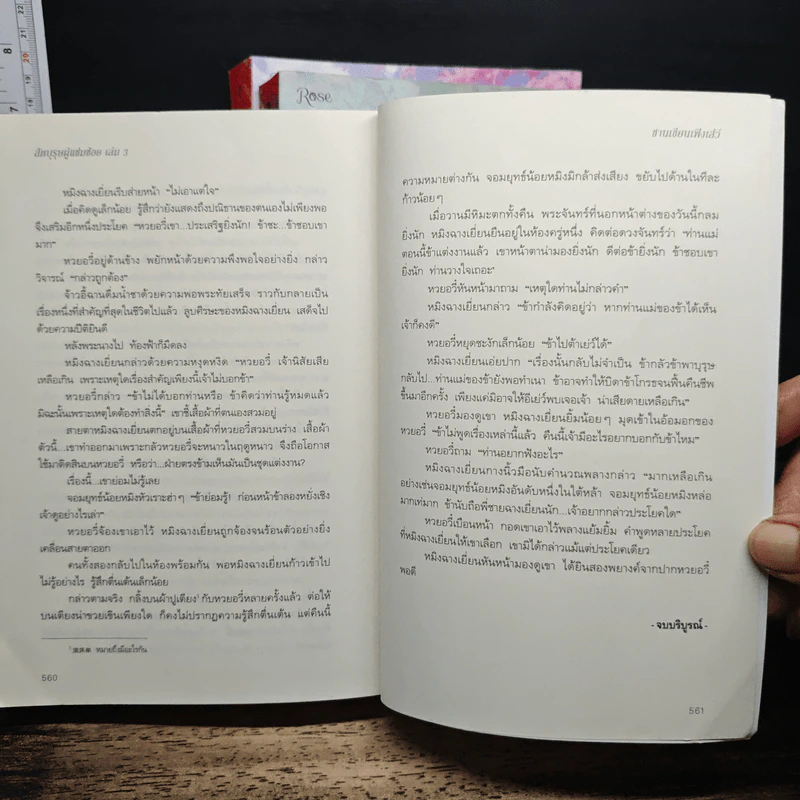 Rose
สัตบุรุษผู้แช่มช้อย เล่ม 3
หมิงฉางเยี่ยนรีบส่ายหน้า "ไม่เอาแต่ใจ"
เมื่อคิดดูเล็กน้อย รู้สึกว่ายังแสดงถึงปณิธานของตนเองไม่เพียงพอ
จึงเสริมอีกหนึ่งประโยค "หวยอวี่เขา...ประเสริฐยิ่งนัก! ข้าชะ...ข้าชอบเขา
มาก"
หวยอวี่อยู่ด้านข้าง พยักหน้าด้วยความพึงพอใจอย่างยิ่ง กล่าว
วิจารณ์ "กล่าวถูกต้อง"
จ้าวอี้ฉานดื่มน้ำชาด้วยความพอพระทัยเสร็จ ราวกับกลายเป็น
เรื่องหนึ่งที่สำคัญที่สุดในชีวิตไปแล้ว ลูบศีรษะของหมิงฉางเยี่ยน เสด็จไป
ด้วยความปีติยินดี
หลังพระนางไป ท้องฟ้าก็มืดลง
หมิงฉางเยี่ยนกล่าวด้วยความหงุดหงิด "หวยอวี่ เจ้านิสัยเสีย
เหลือเกิน เพราะเหตุใดเรื่องสำคัญเพียงนี้เจ้าไม่บอกข้า"
หวยอวี่กล่าว "ข้าไม่ได้บอกท่านหรือ ข้าคิดว่าท่านรู้หมดแล้ว
มิฉะนั้นเพราะเหตุใดต้องทำสิ่งนี้" เขาชี้เสื้อผ้าที่ตนเองสวมอยู่
สายตาหมิงฉางเยี่ยนตกอยู่บนเสื้อผ้าที่หวยอวี่สวมบนร่าง เสื้อผ้า
ตัวนี้...เขาทำออกมาเพราะกลัวหวยอวี่จะหนาวในฤดูหนาว จึงถือโอกาส
ใช้มาติดสินบนหวยอวี่ หรือว่า...ฝ่ายตรงข้ามเห็นมันเป็นชุดแต่งงาน?
เรื่องนี้...เขาย่อมไม่รู้เลย
จอมยุทธ์น้อยหมิงหัวเราะฮ่าๆ "ข้าย่อมรู้! ก่อนหน้าข้าลองหยั่งเชิง
เจ้าดูอย่างไรเล่า"
หวยอวี่จ้องเขาเอาไว้ หมิงฉางเยี่ยนถูกจ้องจนร้อนตัวอย่างยิ่ง
เคลื่อนสายตาออก
คนทั้งสองกลับไปในห้องพร้อมกัน พอหมิงฉางเยี่ยนก้าวเข้าไป
ไม่รู้อย่างไร รู้สึกตื่นเต้นเล็กน้อย
กล่าวตามจริง กลิ้งบนผ้าปูเตียง¹ กับหวยอวี่หลายครั้งแล้ว ต่อให้
บนเตียงน่าขวยเขินเพียงใด ก็คงไม่ปรากฏความรู้สึกตื่นเต้น แต่คืนนี้
หมายถึงมีอะไรกัน
560
ชานเชียนเฟิงเสวี่
ความหมายต่างกัน จอมยุทธ์น้อยหมิงมิกล้าส่งเสียง ขยับไปด้านในทีละ
ก้าวน้อยๆ
เมื่อวานมีหิมะตกทั้งคืน พระจันทร์ที่นอกหน้าต่างของวันนี้กลม
ยิ่งนัก หมิงฉางเยี่ยนยืนอยู่ในห้องครู่หนึ่ง คิดต่อดวงจันทร์ว่า "ท่านแม่
ตอนนี้ข้าแต่งงานแล้ว เขาหน้าตาน่ามองยิ่งนัก ดีต่อข้ายิ่งนัก ข้าชอบเขา
ยิ่งนัก ท่านวางใจเถอะ"
หวยอวี่หันหน้ามาถาม "เหตุใดท่านไม่กล่าวคำ"
หมิงฉางเยี่ยนกล่าว "ข้ากำลังคิดอยู่ว่า หากท่านแม่ของข้าได้เห็น
เจ้าก็คงดี"
หวยอวี่หยุดชะงักเล็กน้อย "ข้าไปต้าเยว์ได้"
หมิงฉางเยี่ยนเอ่ยปาก "เรื่องนั้นกลับไม่จำเป็น ข้ากลัวข้าพาบุรุษ
กลับไป...ท่านแม่ของข้ายังพอทำเนา ข้าอาจทำให้บิดาข้าโกรธจนฟื้นคืนชีพ
ขึ้นมาอีกครั้ง เพียงแค่มิอาจให้อีเยว์พบเจอเจ้า น่าเสียดายเหลือเกิน"
หวยอวี่มองดูเขา หมิงฉางเยี่ยนยิ้มน้อยๆ มุดเข้าในอ้อมอกของ
หวยอวี่ "ข้าไม่พูดเรื่องเหล่านี้แล้ว คืนนี้เจ้ามีอะไรอยากบอกกับข้าไหม"
หวยอวี่ถาม "ท่านอยากฟังอะไร"
หมิงฉางเยี่ยนกางนิ้วมือนับคำนวณพลางกล่าว "มากเหลือเกิน
อย่างเช่นจอมยุทธ์น้อยหมิงอันดับหนึ่งในใต้หล้า จอมยุทธ์น้อยหมิงหล่อ
มากเท่มาก ข้านับถือพี่ชายฉางเยี่ยนนัก...เจ้าอยากกล่าวประโยคใด"
หวยอวี่เบือนหน้า กอดเขาเอาไว้พลางแย้มยิ้ม คำพูดหลายประโยค
ที่หมิงฉางเยี่ยนให้เขาเลือก เขามิได้กล่าวแม้แต่ประโยคเดียว
หมิงฉางเยี่ยนหันหน้ามองดูเขา ได้ยินสองพยางค์จากปากหวยอวี่
พอดี
-จบบริบูรณ์-
561